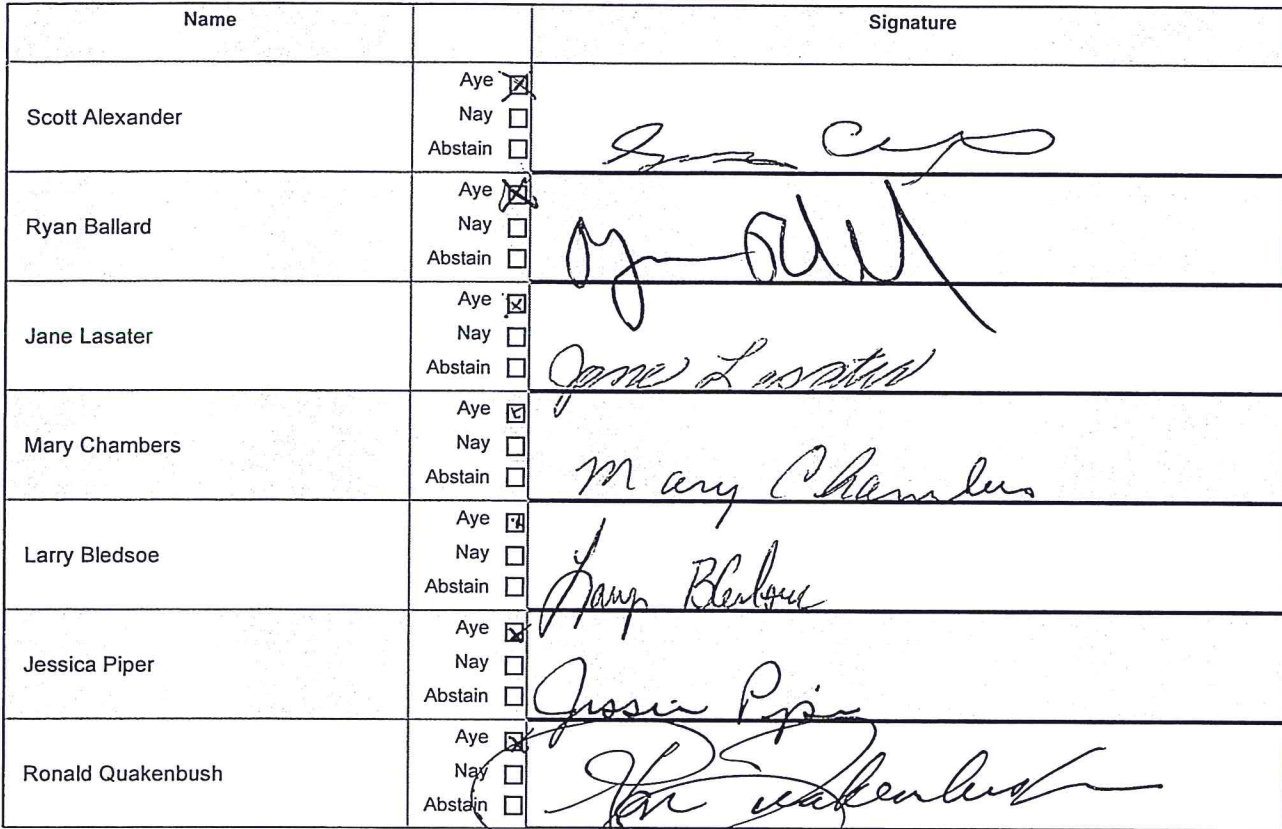 Name Signature
Aye ☒
Scott Alexander Nay ☐
Abstain ☐
Aye ☒
Ryan Ballard Nay ☐
Abstain ☐
Aye ☒
Jane Lasater Nay ☐
Abstain ☐ Jane Lasater
Aye ☒
Mary Chambers Nay ☐
Abstain ☐ Mary Chambers
Aye ☒
Larry Bledsoe Nay ☐
Abstain ☐ Larry Bledsoe
Aye ☒
Jessica Piper Nay ☐
Abstain ☐ Jessica Piper
Aye ☒
Ronald Quakenbush Nay ☐
Abstain ☐ Ron Quakenbush